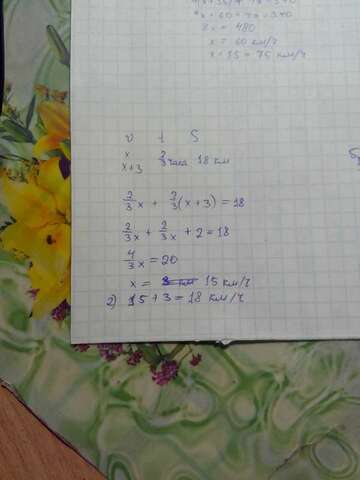 4x + 60 + 4x = 540
8x = 480
x = 60 км/ч
x + 15 = 75 км/ч
v t S
x
x+3 2/3 часа 18 км
2/3 x + 2/3 (x + 3) = 18
2/3 x + 2/3 x + 2 = 18
4/3 x = 20
x = 15 км/ч
2) 15 + 3 = 18 км/ч